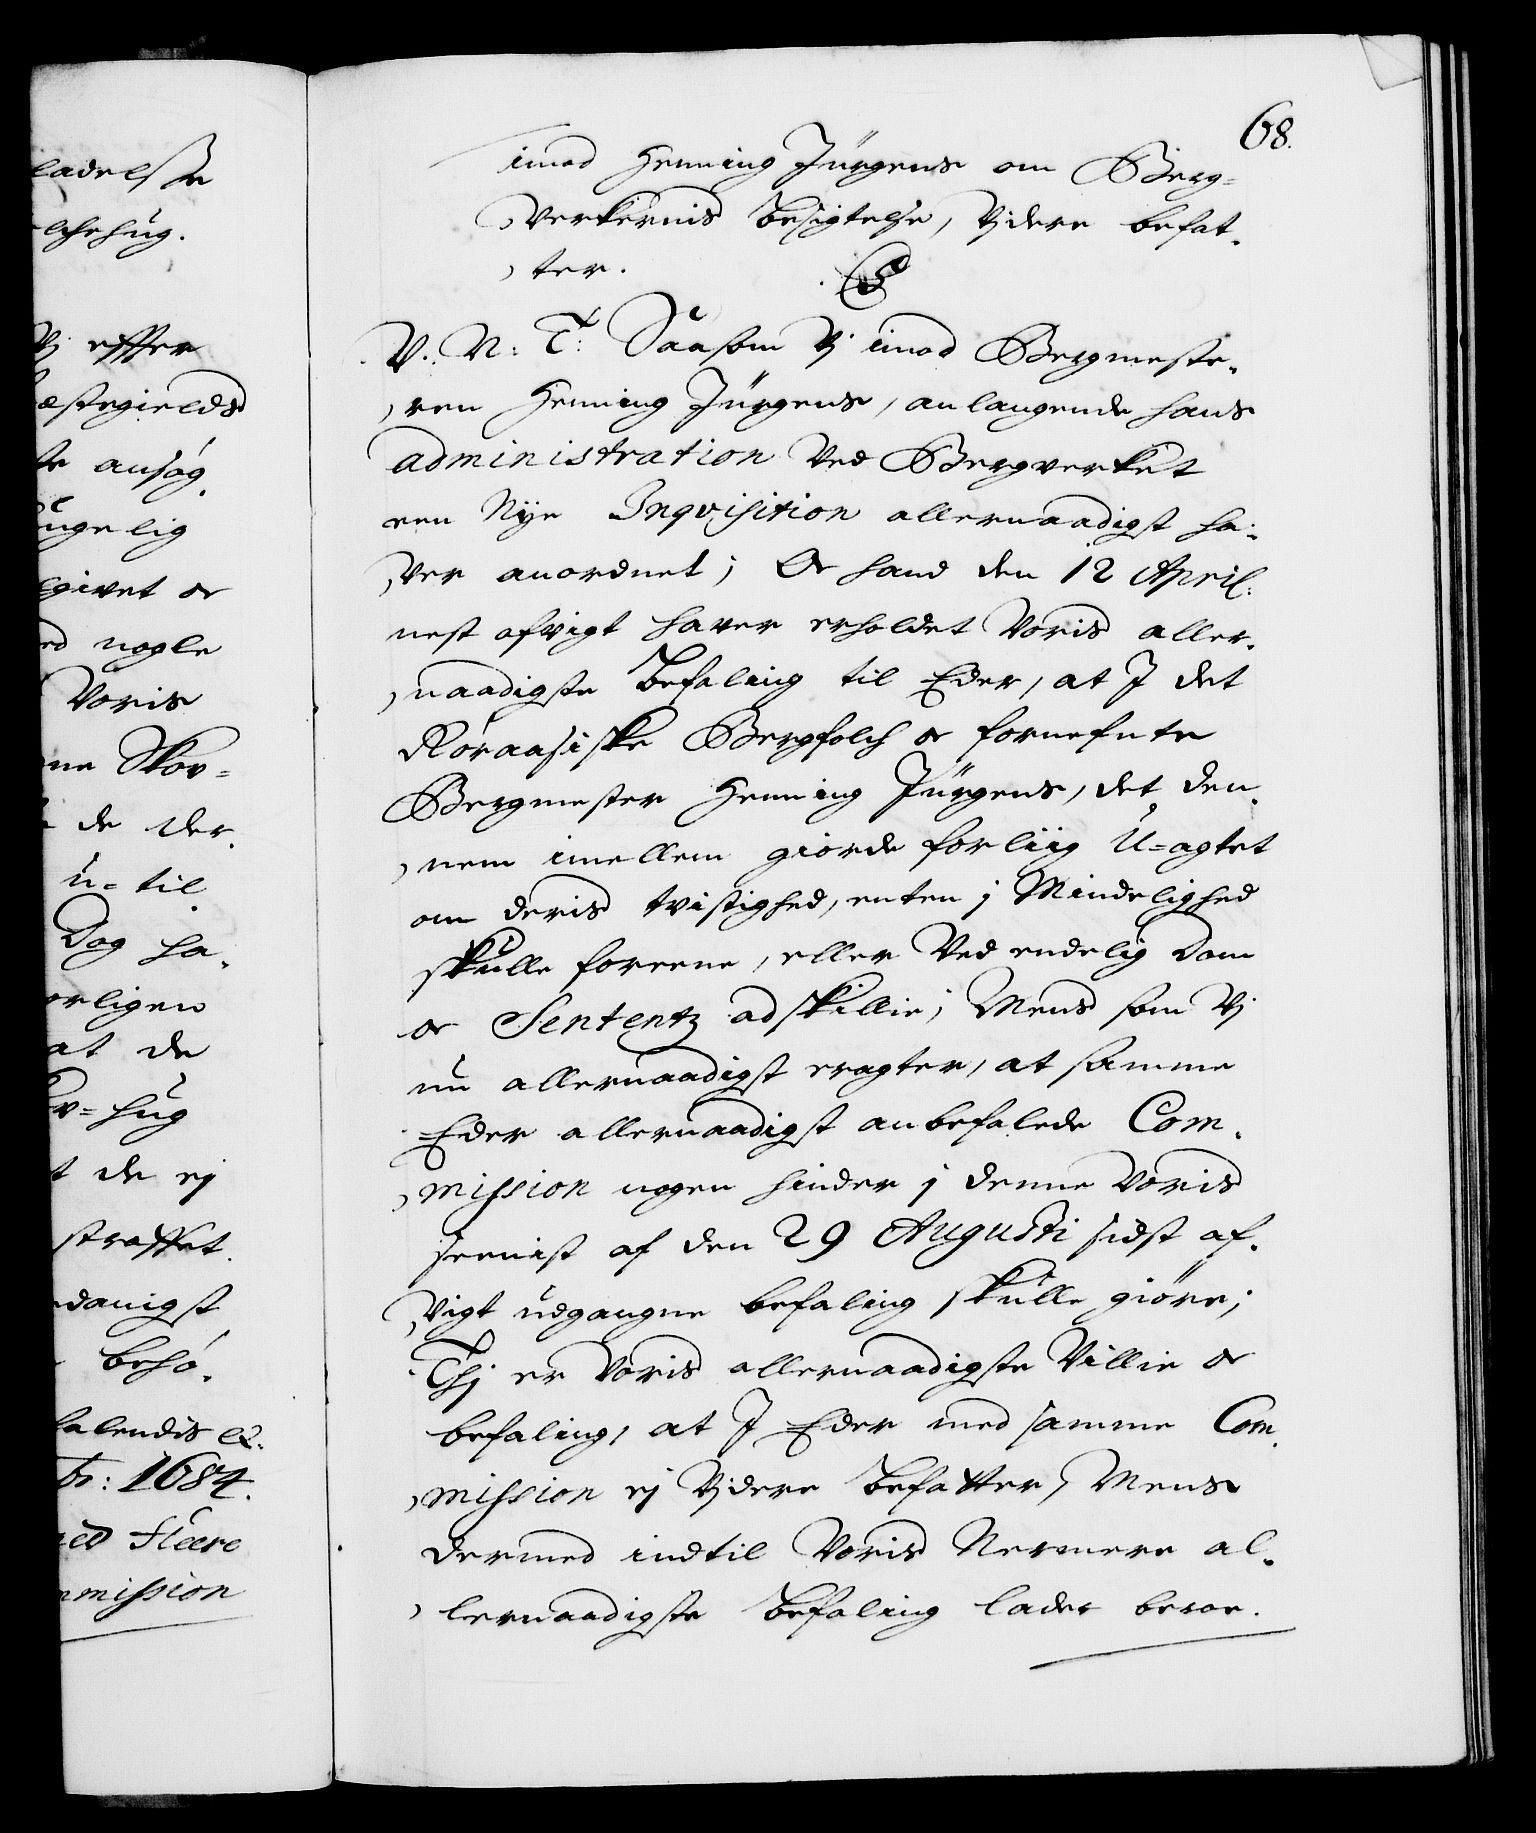 ladelsse
lchehug.
Vj effter
æstegields
te ansøg
ungelig
lgivet oc
ed nogle
Voris
ne Skov=
de der
u=til
Dog ha
orligen
at de
ov=hug
t de ej
straffet.
danigst
behø
alendis &.
br: 1684.
ed Fleere
mmission
68.
imod Henning Jürgens om Berg=
verkernis Besigtelse, Vjdere befat
ter.
V. N: T: Saasom Vj imod Bergmeste
ren Henning Jürgens, anlangende hans
administration Ved Bergverket
een Nÿe Inqvisition allernaadigst ha
ver anordnet; Oc hand den 12 April:
nest afvigt haver erholdet Voris aller
naadigste Befaling til Eder, at I det
Røraasiske Bergfolch oc fornefnte
Bergmester Henning Jürgens, det den
nem imellem giorde forliig U=agtet
om deris tvistighed, enten j Mindelighed
skulle foreene, eller Ved endelig Dom
oc Sententz adskillie; Mens som Vj
nu allernaadigst eragter, at samme
Eder allernaadigst anbefalede Com
mission nogen hinder j denne Voris
seenist af den 29 Augusti sidst af
vigt udgangne befaling skulle giöre;
Thj er Voris allernaadigste Villie oc
befaling, at I Eder med samme Com
mission ej Vjdere Befatter, Mens
dermed indtil Voris Nermere al
lernaadigste Befaling lader beroe.